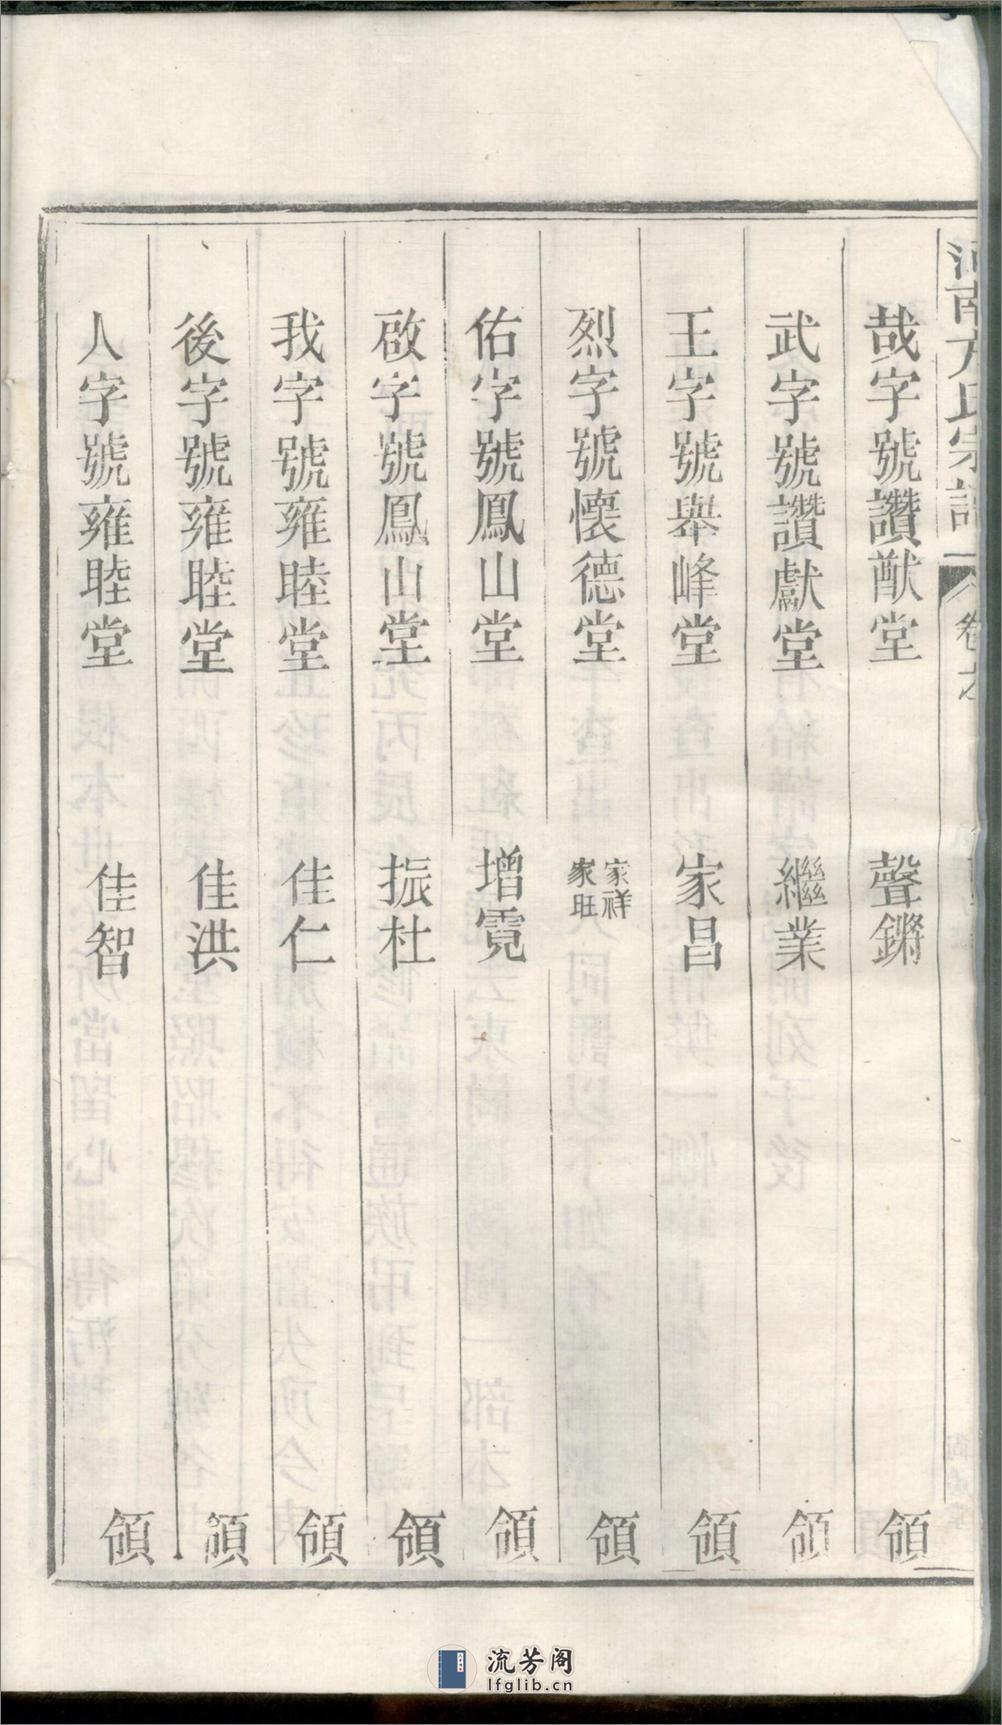 河南方氏宗譜
卷之
哉字號讚猷堂 聲鏘 領
武字號讚獻堂 繼業 領
王字號舉峰堂 家昌 領
烈字號懷德堂 家祥 家旺 領
佑字號鳳山堂 增霓 領
啟字號鳳山堂 振杜 領
我字號雍睦堂 佳仁 領
後字號雍睦堂 佳洪 領
人字號雍睦堂 佳智 領
流芳阁
lfglib.cn